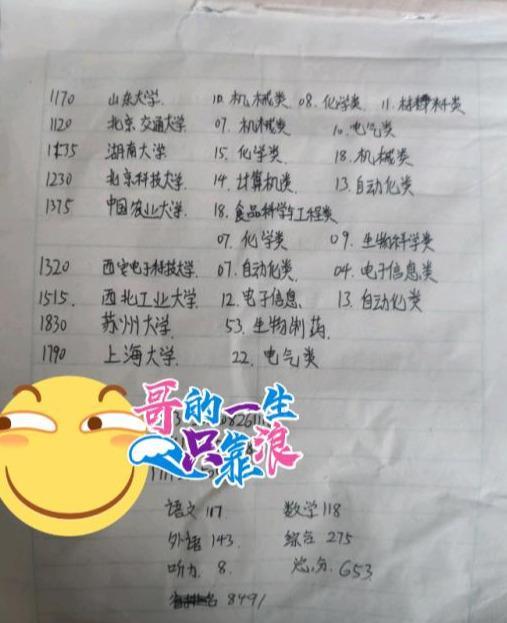 1170 山东大学. 10. 机械类. 08. 化学类. 11. 材料类
1120 北京交通大学 07. 机械类 10. 电气类
1535 湖南大学 15. 化学类 18. 机械类
1230 北京科技大学. 14. 计算机类. 13. 自动化类
1375 中国农业大学. 18. 食品科学与工程类
07. 化学类 09. 生物科学类
1320 西安电子科技大学. 07. 自动化类. 04. 电子信息类
1515. 西北工业大学 12. 电子信息. 13. 自动化类
1830 苏州大学 53. 生物制药.
1790 上海大学. 22. 电气类
哥的一生
只靠浪
语文 117. 数学 118
外语 143. 综合 275
听力 8. 总分. 653.
8491